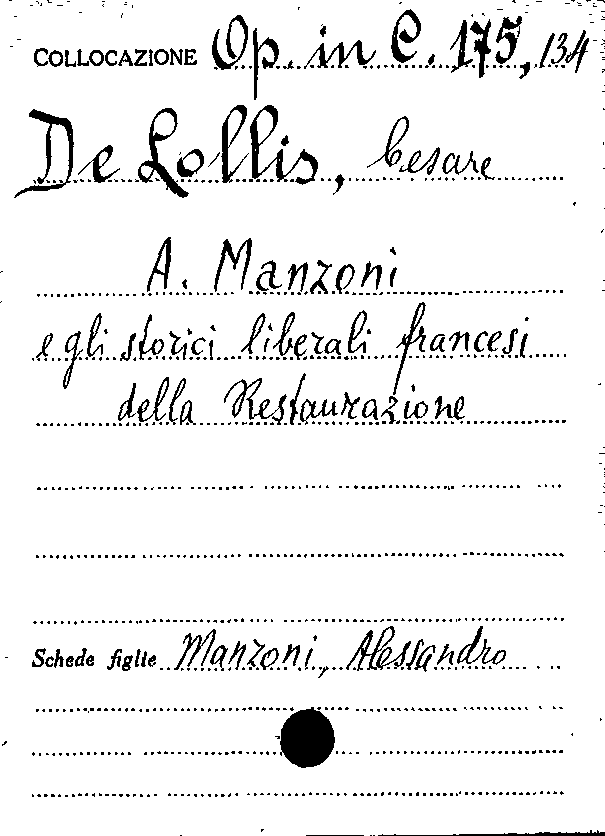 COLLOCAZIONE Op. in C. 175, 134
De Lollis, Cesare
A. Manzoni
e gli storici liberali francesi
della Restaurazione
Schede figlie Manzoni, Alessandro